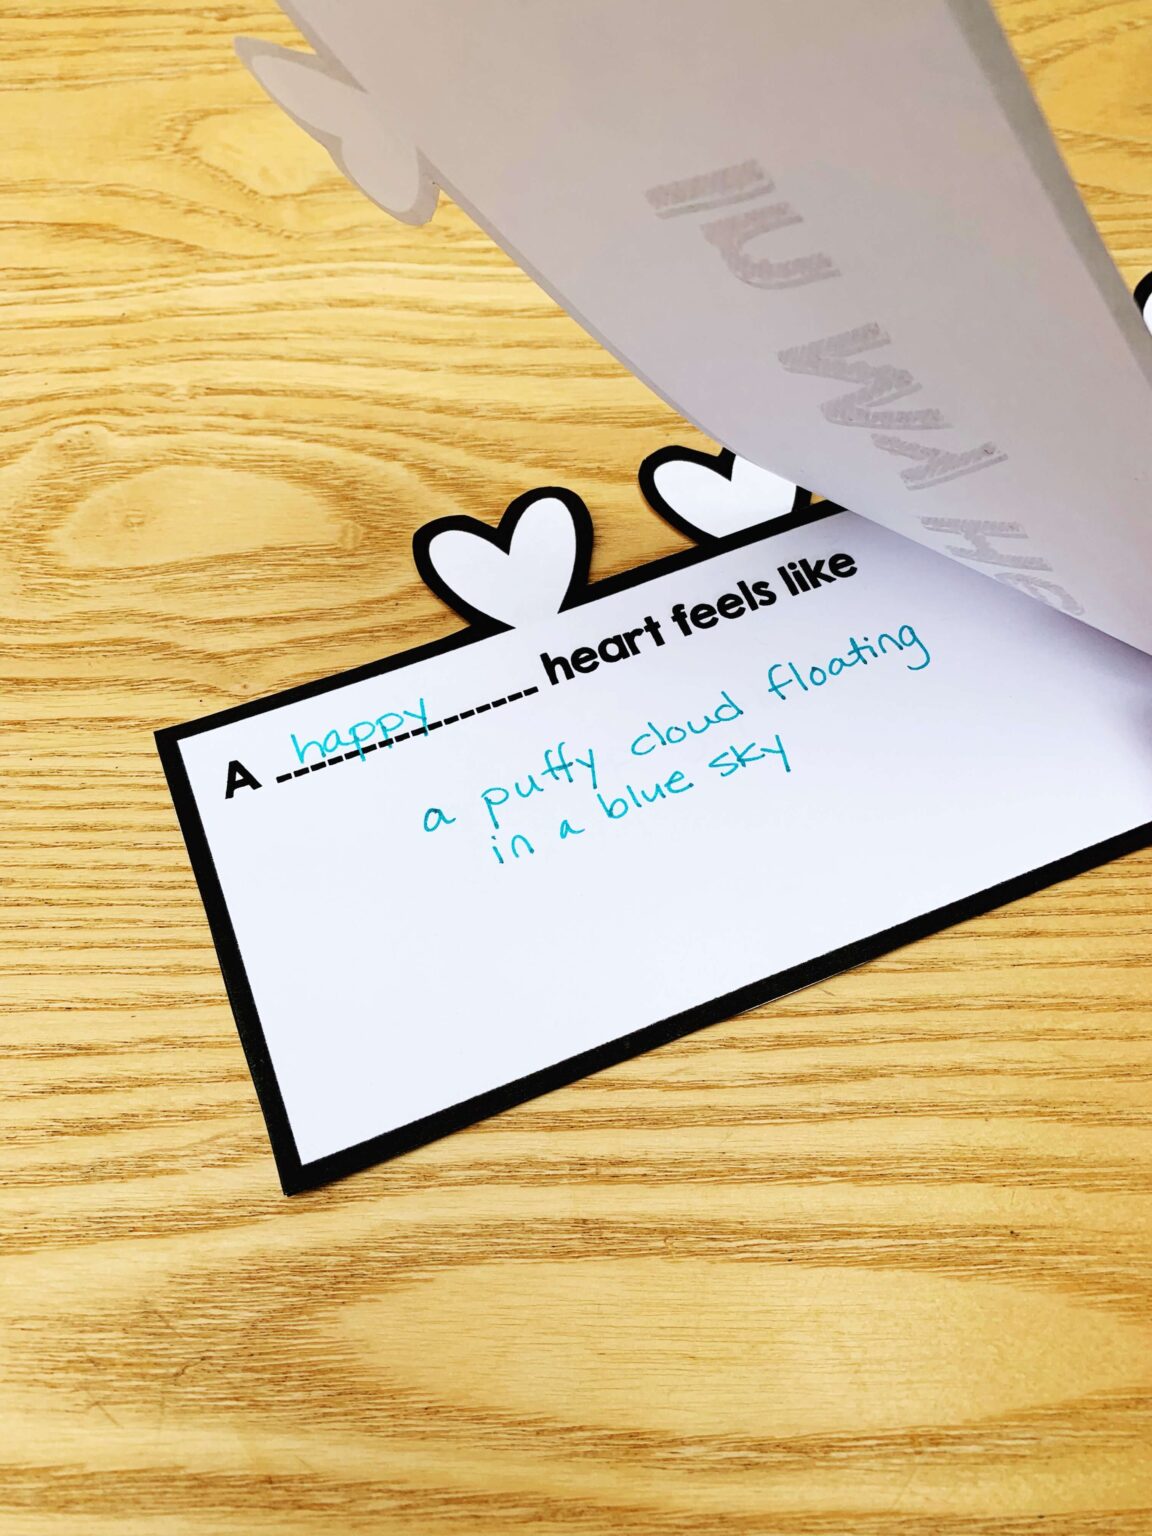 A happy heart feels like
a puffy cloud floating
in a blue sky